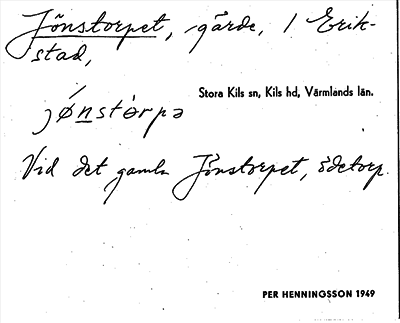 Jönstorpet, -gärde, / Erik-
stad,
Stora Kils sn, Kils hd, Värmlands län.
jǿnstòrpə
Vid det gamla Jönstorpet, ödetorp.
PER HENNINGSSON 1949